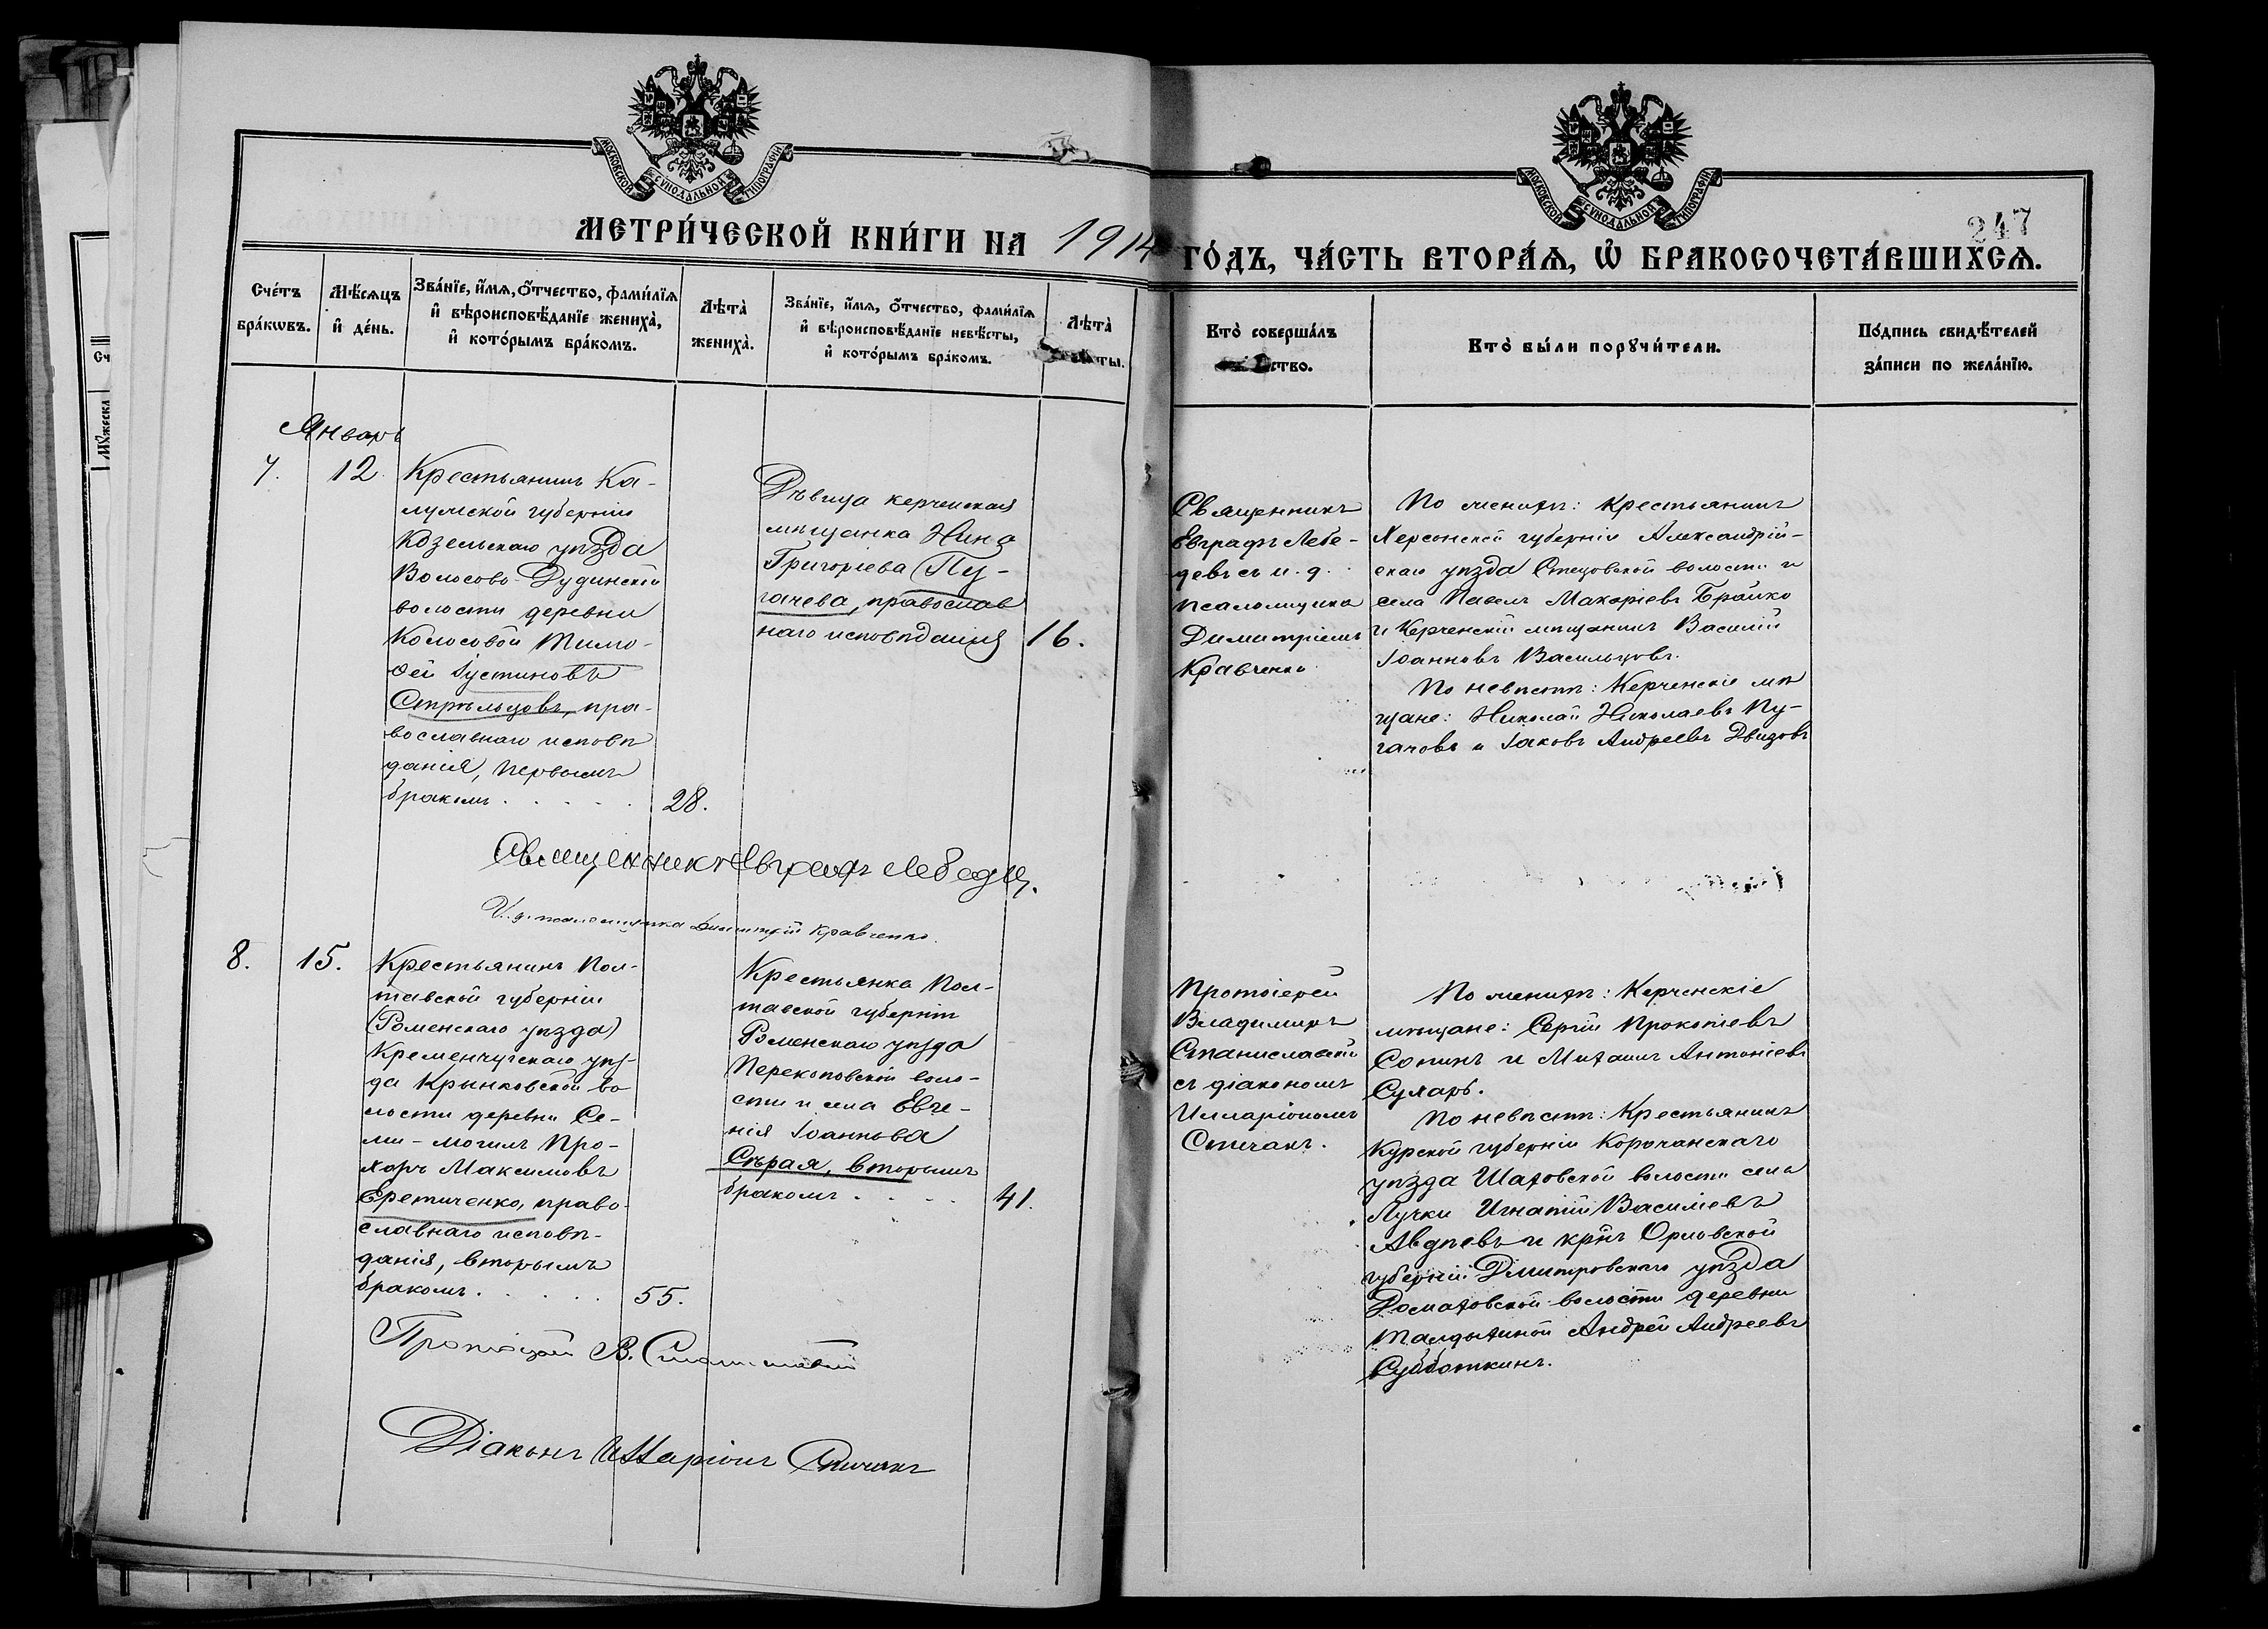 МОСКОВСКОЙ СѴНОДАЛЬНОЙ ТИПОГРАФІИ
МОСКОВСКОЙ СѴНОДАЛЬНОЙ ТИПОГРАФІИ
247
МЕТРИ́ЧЕСКОЙ КНИ́ГИ НА 1914 ГО́ДЪ, ЧА́СТЬ ВТОРА́Ѧ, Ѡ БРАКОСОЧЕТА́ВШИХСѦ.
Сче́тъ
бра́кѡвъ.
Мѣ́сѧцъ
и҆ де́нь.
Зва́нїе, и҆́мѧ, ѻ҆́тчество, фами́лїѧ
и҆ вѣроисповѣ́данїе жениха̀,
и҆ кото́рымъ бра́комъ.
Лѣта̀
жениха̀.
Зва́нїе, и҆́мѧ, ѻ҆́тчество, фами́лїѧ
и҆ вѣроисповѣ́данїе невѣ́сты,
и҆ кото́рымъ бра́комъ.
Лѣта̀
ты.
Кто̀ соверша́лъ
ство.
Кто̀ бы́ли порꙋчи́тели.
По́дпись свидѣ́телей
за́писи по жела́нїю.
Январь
7.
12.
Крестьянинъ Ка-
лужской губерніи
Козельскаго уѣзда
Волосово-Дудинской
волости деревни
Колосовой Тимо-
ѳей Іустиновъ
Стрѣльцовъ, пра-
вославнаго исповѣ
данія, первымъ
бракомъ . . . . .
28.
Дѣвица керченская
мѣщанка Нина
Григоріева Пу-
гачева, православ
наго исповѣданія
16.
Священникъ
Евграфъ Лебе-
девъ съ и. д.
псаломщика
Димитріемъ
Кравченко
По женихѣ: Крестьянинъ
Херсонской губерніи Александрій-
скаго уѣзда Стецовской волости и
села Павелъ Макаріевъ Брайко
и Керченскій мѣщанинъ Василій
Іоанновъ Васильцовъ.
По невѣстѣ: Керченскіе мѣ
щане: Николай Николаевъ Пу-
гачовъ и Іаковъ Андреевъ
Священникъ Евграфъ Лебедев.
И. д. псаломщика Димитрій Кравченко.
8.
15.
Крестьянинъ Пол-
тавской губерніи
(Роменскаго уѣзда)
Кременчугскаго уѣз-
да Крынковской во
лости деревни Се-
ми-могилъ Про-
хоръ Максимовъ
Еретиченко, право-
славнаго исповѣ-
данія, вторымъ
бракомъ . . . . .
55.
Крестьянка Пол-
тавской губерніи
Роменскаго уѣзда
Перекоповской воло-
сти и села Евге-
нія Іоаннова
Сѣрая, вторымъ
бракомъ . . . .
41.
Протоіерей
Владимиръ
Станиславскій
съ діакономъ
Илларіономъ
Спичакъ.
По женихѣ: Керченскіе
мѣщане: Сергій Прокопіевъ
Сопинъ и Михаилъ Антоніевъ
Сухарь.
По невѣстѣ: Крестьянинъ
Курской губерніи Корочанскаго
уѣзда Шаховской волости села
Лучки Игнатій Василіевъ
Авдѣевъ и крнъ Орловской
губерніи Дмитровскаго уѣзда
волости деревни
Андрей Андреевъ
Субботкинъ.
Протоіерей В. Станиславскій
Діаконъ Илларіонъ Спичакъ